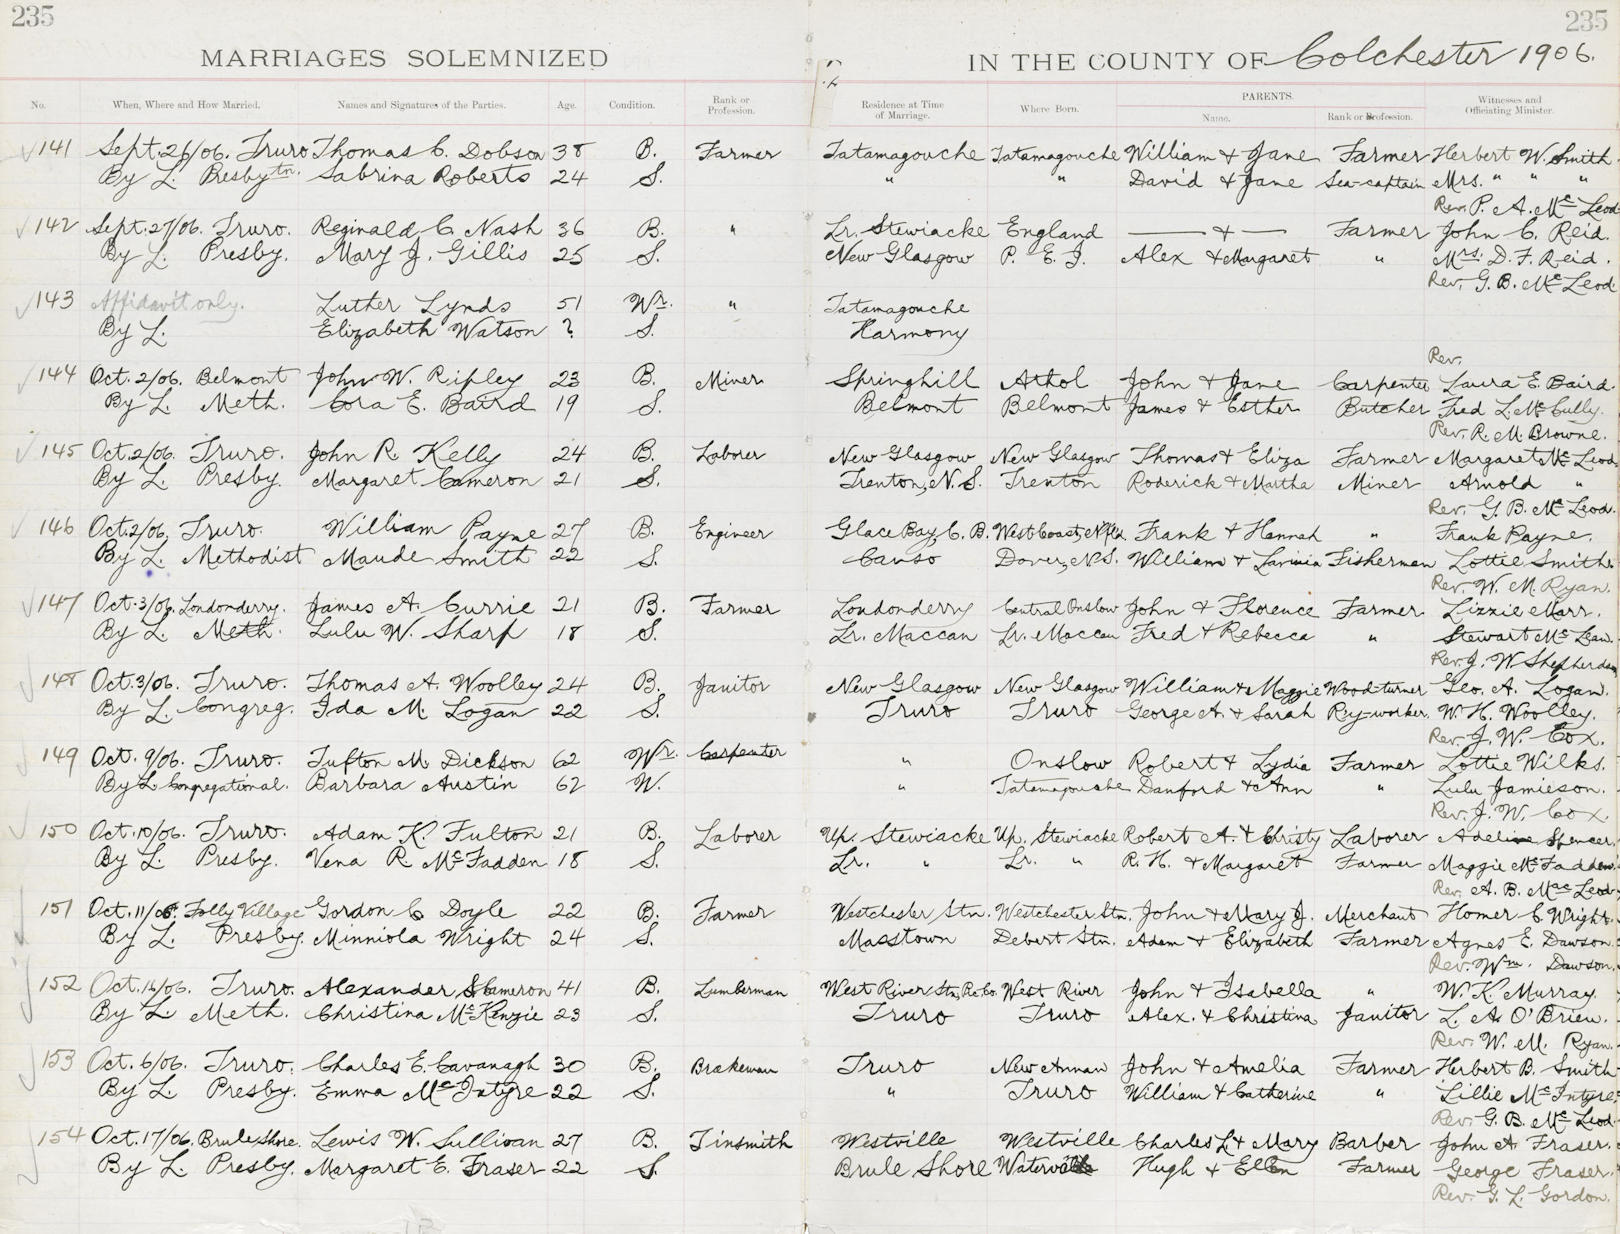 235 235
MARRIAGES SOLEMNIZED IN THE COUNTY OF Colchester 1906.
No. When, Where and How Married. Names and Signatures of the Parties. Age. Condition. Rank or Profession. Residence at Time of Marriage. Where Born. PARENTS. Name. Rank or Profession. Witnesses and Officiating Minister.
141 Sept. 26/06. Truro Thomas C. Dobson 38 B. Farmer Tatamagouche Tatamagouche William & Jane Farmer Herbert W. Smith
By L. Presbytn. Sabrina Roberts 24 S. " " David & Jane Sea-captain Mrs. " " "
Rev. P. A. McLeod
142 Sept. 27/06. Truro. Reginald C. Nash 36 B. " Lr. Stewiacke England — & — Farmer John C. Reid.
By L. Presby. Mary J. Gillis 25 S. New Glasgow P. E. I. Alex & Margaret " Mrs. D. F. Reid.
Rev. G. B. McLeod
143 Affidavit only. Luther Lynds 51 Wr. " Tatamagouche
By L. Elizabeth Watson ? S. Harmony
Rev.
144 Oct. 2/06. Belmont John W. Ripley 23 B. Miner Springhill Athol John & Jane Carpenter Laura E. Baird.
By L. Meth. Cora E. Baird 19 S. Belmont Belmont James & Esther Butcher Fred L. McCully.
Rev. R. M. Browne.
145 Oct. 2/06. Truro. John R. Kelly 24 B. Laborer New Glasgow New Glasgow Thomas & Eliza Farmer Margaret McLeod
By L. Presby. Margaret Cameron 21 S. Trenton, N.S. Trenton Roderick & Martha Miner Arnold "
Rev. G. B. McLeod.
146 Oct. 2/06, Truro. William Payne 27 B. Engineer Glace Bay, C. B. West Coast, Nfld Frank & Hannah " Frank Payne.
By L. Methodist Maude Smith 22 S. Canso Dover, N.S. William & Lavinia Fisherman Lottie Smith.
Rev. W. M. Ryan.
147 Oct. 3/06. Londonderry. James A. Currie 21 B. Farmer Londonderry Central Onslow John & Florence Farmer Lizzie Marr.
By L. Meth. Lulu W. Sharp 18 S. Lr. Maccan Lr. Maccan Fred & Rebecca " Stewart McLean.
Rev. J. W. Shepherdson
148 Oct. 3/06. Truro. Thomas A. Woolley 24 B. Janitor New Glasgow New Glasgow William & Maggie Wood-turner Geo. A. Logan.
By L. Congreg. Ida M. Logan 22 S. Truro Truro George A. & Sarah Ry-worker. W. H. Woolley.
Rev. J. W. Cox.
149 Oct. 9/06. Truro. Tufton M. Dickson 62 Wr. Carpenter " Onslow Robert & Lydia Farmer Lottie Wilks.
By L. Congregational. Barbara Austin 62 W. " Tatamagouche Danford & Ann " Lulu Jamieson.
Rev. J. W. Cox.
150 Oct. 10/06. Truro. Adam K. Fulton 21 B. Laborer Up. Stewiacke Up. Stewiacke Robert A. & Christy Laborer Adeline Spencer.
By L. Presby. Vena R. McFadden 18 S. Lr. " Lr. " R. H. & Margaret Farmer Maggie McFadden.
Rev. A. B. MacLeod
151 Oct. 11/06. Folly Village Gordon C Doyle 22 B. Farmer Westchester Stn. Westchester Stn. John & Mary J. Merchant Homer C. Wright.
By L. Presby. Minniola Wright 24 S. Masstown Debert Stn. Adam & Elizabeth Farmer Agnes E. Dawson.
Rev. Wm. Dawson.
152 Oct. 16/06. Truro. Alexander S Cameron 41 B. Lumberman West River Stn, Pic. Co. West River John & Isabella " W. K. Murray.
By L. Meth. Christina McKenzie 23 S. Truro Truro Alex. & Christina Janitor L. A. O'Brien.
Rev. W. M. Ryan.
153 Oct. 6/06. Truro. Charles E. Cavanagh 30 B. Brakeman Truro New Annan John & Amelia Farmer Herbert B. Smith
By L. Presby. Emma McIntyre 22 S. " Truro William & Catherine " Lillie McIntyre.
Rev. G. B. McLeod.
154 Oct. 17/06. Brule Shore. Lewis W. Sullivan 27 B. Tinsmith Westville Westville Charles L & Mary Barber John A Fraser.
By L. Presby. Margaret E. Fraser 22 S. Brule Shore Hugh & Ellen Farmer George Fraser.
Rev. G. L. Gordon.